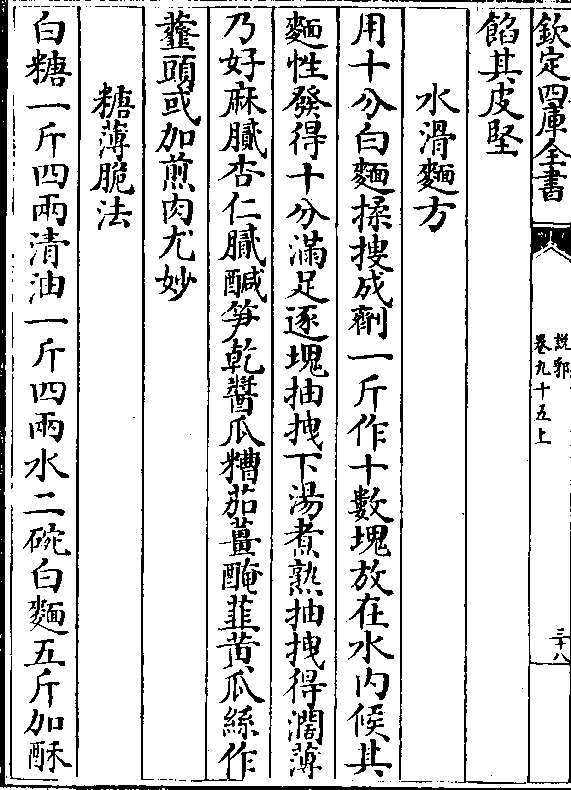 欽定四庫全書
說郛
卷九十五上
三十八
餡其皮堅
水滑麵方
用十分白麵揉搜成劑一斤作十數塊放在水内候其
麵性發得十分滿足逐塊抽拽下湯煮熟抽拽得濶薄
乃好麻膩杏仁膩鹹笋乾醬瓜糟茄薑醃韮黄瓜絲作
虀頭或加煎肉尤妙
糖薄脆法
白糖一斤四兩清油一斤四兩水二碗白麵五斤加酥